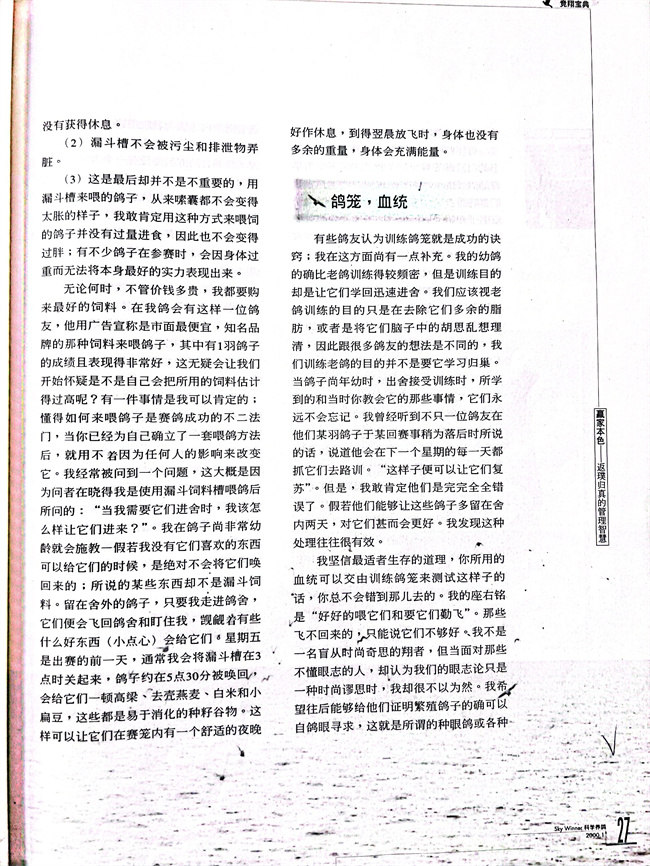 竞翔宝典
没有获得休息。
（2）漏斗槽不会被污尘和排泄物弄
脏。
（3）这是最后却并不是不重要的，用
漏斗槽来喂的鸽子，从来嗉囊都不会变得
太胀的样子，我敢肯定用这种方式来喂饲
的鸽子并没有过量进食，因此也不会变得
过胖；有不少鸽子在参赛时，会因身体过
重而无法将本身最好的实力表现出来。
无论何时，不管价钱多贵，我都要购
来最好的饲料。在我鸽会有这样一位鸽
友，他用广告宣称是市面最便宜，知名品
牌的那种饲料来喂鸽子，其中有1羽鸽子
的成绩且表现得非常好，这无疑会让我们
开始怀疑是不是自己会把所用的饲料估计
得过高呢？有一件事情是我可以肯定的；
懂得如何来喂鸽子是赛鸽成功的不二法
门，当你已经为自己确立了一套喂鸽方法
后，就用不着因为任何人的影响来改变
它。我经常被问到一个问题，这大概是因
为问者在晓得我是使用漏斗饲料槽喂鸽后
所问的：“当我需要它们进舍时，我该怎
么样让它们进来？”。我在鸽子尚非常幼
龄就会施教—假若我没有它们喜欢的东西
可以给它们的时候，是绝对不会将它们唤
回来的；所说的某些东西却不是漏斗饲
料。留在舍外的鸽子，只要我走进鸽舍，
它们便会飞回鸽舍和盯住我，觊觎着有些
什么好东西（小点心）会给它们。星期五
是出赛的前一天，通常我会将漏斗槽在3
点时关起来，鸽子约在5点30分被唤回，
会给它们一顿高梁、去壳燕麦、白米和小
扁豆，这些都是易于消化的种籽谷物。这
样可以让它们在赛笼内有一个舒适的夜晚
好作休息，到得翌晨放飞时，身体也没有
多余的重量，身体会充满能量。
鸽笼，血统
有些鸽友认为训练鸽笼就是成功的诀
窍；我在这方面尚有一点补充。我的幼鸽
的确比老鸽训练得较频密，但是训练目的
却是让它们学回迅速进舍。我们应该视老
鸽训练的目的只是在去除它们多余的脂
肪，或者是将它们脑子中的胡思乱想理
清，因此跟很多鸽友的想法是不同的，我
们训练老鸽的目的并不是要它学习归巢。
当鸽子尚年幼时，出舍接受训练时，所学
到的和当时你教会它的那些事情，它们永
远不会忘记。我曾经听到不只一位鸽友在
他们某羽鸽子于某回赛事稍为落后时所说
的话，说道他会在下一个星期的每一天都
抓它们去路训。“这样子便可以让它们复
苏”。但是，我敢肯定他们是完完全全错
误了。假若他们能够让这些鸽子多留在舍
内两天，对它们甚而会更好。我发现这种
处理往往很有效。
我坚信最适者生存的道理，你所用的
血统可以交由训练鸽笼来测试这样子的
话，你总不会错到那儿去的。我的座右铭
是“好好的喂它们和要它们勤飞”。那些
飞不回来的，只能说它们不够好。我不是
一名盲从时尚奇思的翔者，但当面对那些
不懂眼志的人，却认为我们的眼志论只是
一种时尚谬思时，我却很不以为然。我希
望往后能够给他们证明繁殖鸽子的确可以
自鸽眼寻求，这就是所谓的种眼鸽或各种
赢家本色——返璞归真的管理智慧
Sky Winner 科学养鸽
2000.1
27